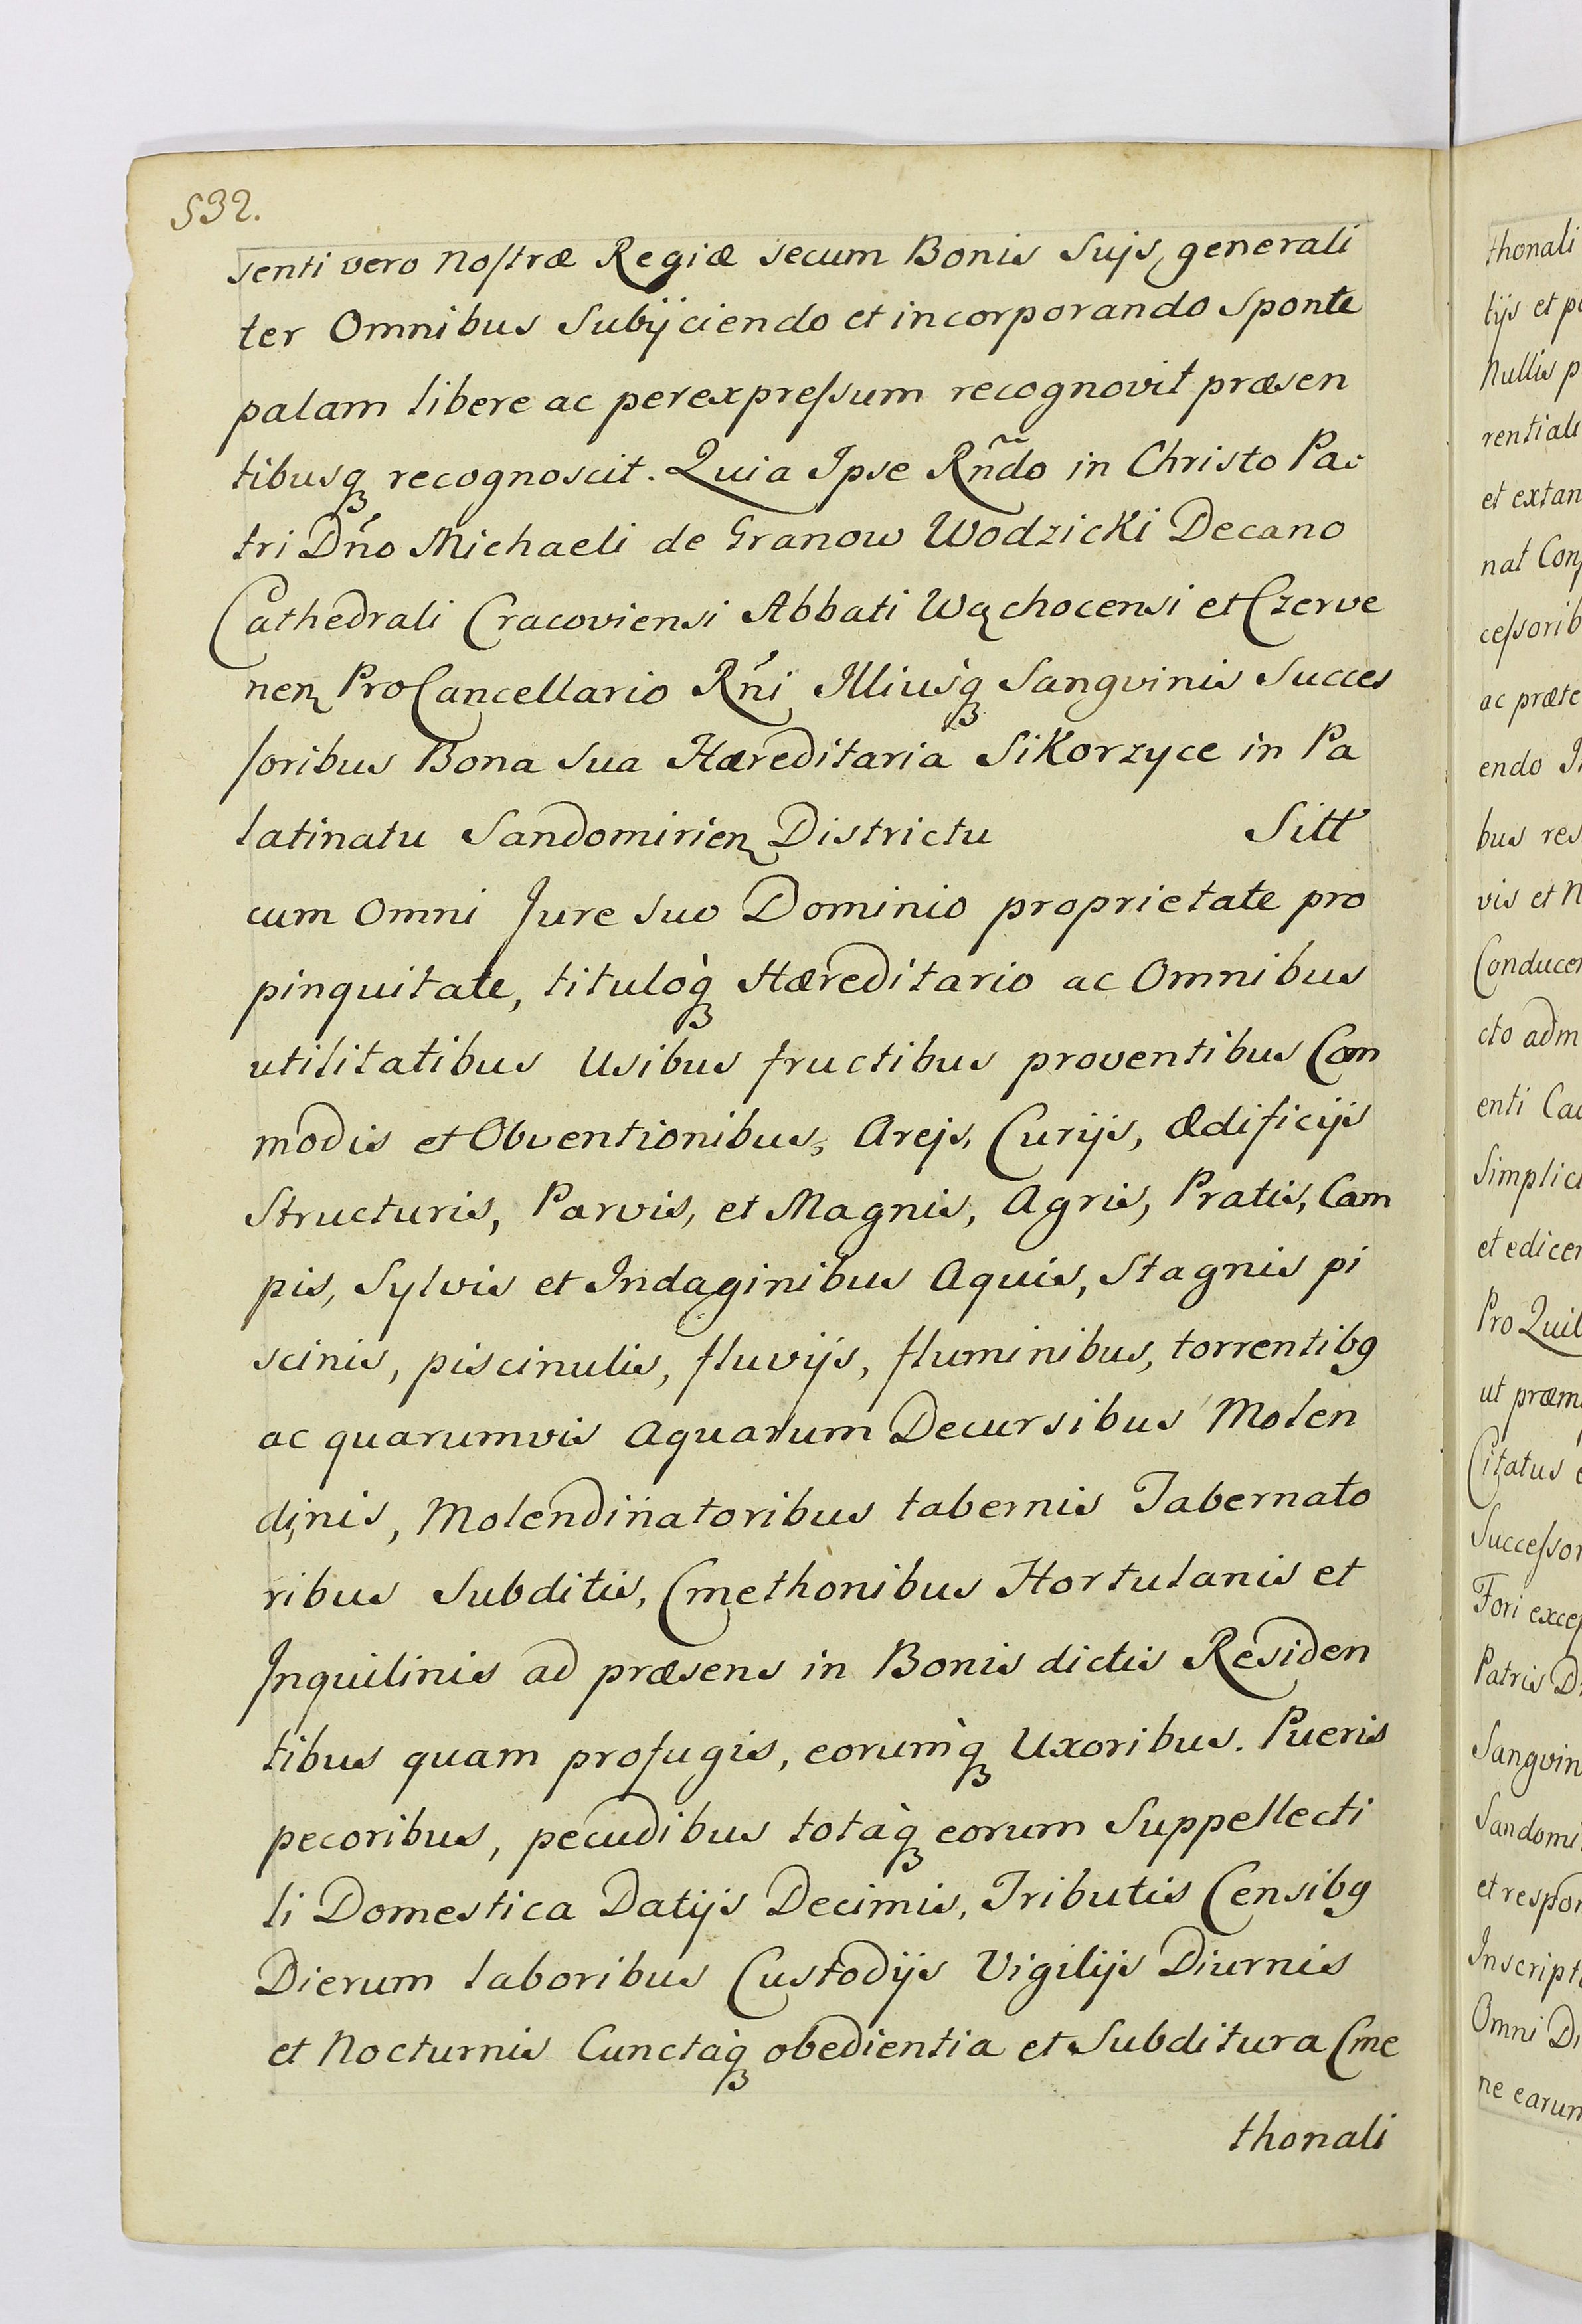 532.
senti vero noſtræ Regiæ secum Bonis Sujs, generali
ter Omnibus Subÿciendo et incorporando Sponte
palam libere ac perexpreſsum recognovit præsen
tibusq́ꝫ recognoscit. Quia Ipse Rñdo in Christo Pa:
tri Dño Michaeli de Granow Wodzicki Decano
Cathedrali Cracoviensi Abbati Wąchocensi et Czerve
nen̨ ProCancellario Rñi Illiusq̀ꝫ Sangvinis Succes
ſoribus Bona Sua Hæreditaria Sikorzyce in Pa
latinatu Sandomirien̨ Districtu Sitt
cum Omni Jure Suo Dominio proprietate pro
pinquitate, tituloq̀ꝫ Hæreditario ac Omnibus
utilitatibus Usibus fructibus proventibus Com
modis et Obventionibus, Arejs, Curijs, Ædificijs
Structuris, Parvis, et Magnis, Agris, Pratis, Cam
pis, Sylvis et Indaginibus Aquis, Stagnis pi
scinis, piscinulis, fluvijs, fluminibus, torrentibꝯ
ac quarumvis Aquarum Decursibus Molen
dinis, Molendinatoribus tabernis Tabernato
ribus Subditis, Cmethonibus Hortulanis et
Inquilinis ad præsens in Bonis dictis Residen
tibus quam profugis, eorumq̀ꝫ Uxoribus. Pueris
pecoribus, pecudibus totaq̀ꝫ eorum Suppellecti
li Domestica Datijs Decimis, Tributis Censibꝯ
Dierum laboribus Custodijs Vigilijs Diurnis
et Nocturnis Cunctaq̀ꝫ obedientia et Subditura Cme
thonali
thonali
tijs et
Nullis
et extan
nat
ceſsorib
ac præte
endo
bus res
vis et
Conducen
cto adm
enti
Simplici
et edicen
Pro Quil
ut præm
Citatus
Succeſsor
Fori excep
Patris
Sangvin
Sandomi
et respon
Inscript
Omni
ne earum